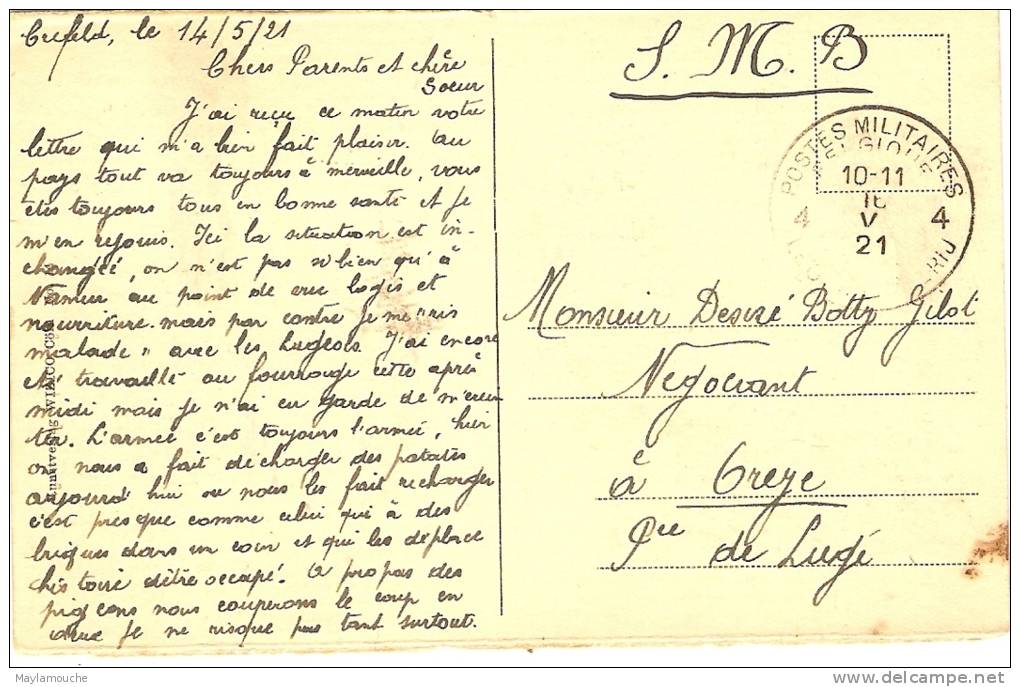 Crefeld, le 14/5/21
Chers Parents et chère
Soeur
J'ai reçu ce matin votre
lettre qui m'a bien fait plaisir. Au
pays tout va toujours à merveille, vous
êtes toujours tous en bonne santé et je
m'en rejouis. Ici la situation est in-
changéé, on n'est pas si bien qu'à
Namur au point de vue logis et
nourriture. mais par contre je me "ris
malade" avec les Liégeois. J'ai encore
été travaillé au fourrage cette après
midi mais je n'ai eu garde de m'érein
ter. L'armée c'est toujours l'armée, hier
on nous a fait décharger des patates
aujourd'hui on nous les fait recharger
c'est presque comme celui qui à des
briques dans un coin et qui les déplace
histoire d'être occupé. A propos des
pigeons nous couperons le coup en
deux je ne risque pas tant surtout.
S. M. B
POSTES MILITAIRES
BELGIQUE
10-11
16
4 V 4
21
Monsieur Desiré Botty Gilot
Négociant
à Oreye
Pce de Liégé
Maylamouche
delcampe.net